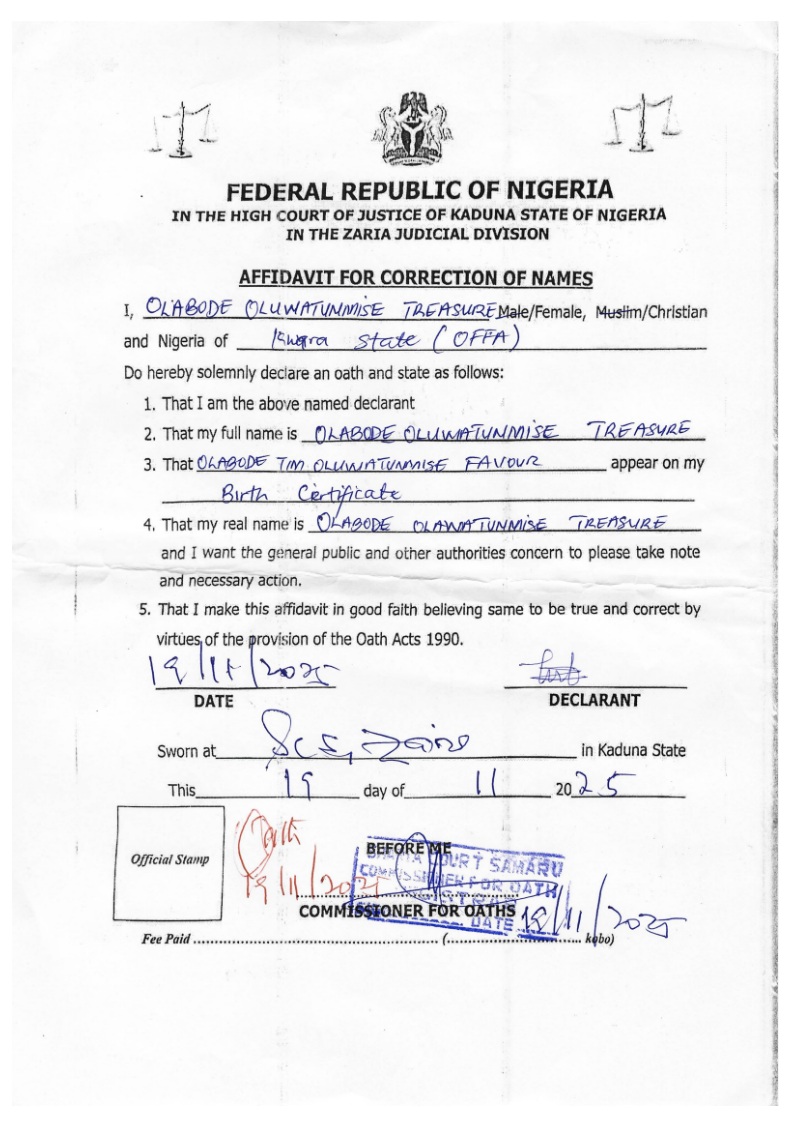 FEDERAL REPUBLIC OF NIGERIA
IN THE HIGH COURT OF JUSTICE OF KADUNA STATE OF NIGERIA
IN THE ZARIA JUDICIAL DIVISION
AFFIDAVIT FOR CORRECTION OF NAMES
I, OLABODE OLUWATUNMISE TREASURE Male/Female, Muslim/Christian
and Nigeria of Kwara State (OFFA)
Do hereby solemnly declare an oath and state as follows:
1. That I am the above named declarant
2. That my full name is OLABODE OLUWATUNMISE TREASURE
3. That OLABODE TIM OLUWATUNMISE FAVOUR appear on my
Birth Certificate
4. That my real name is OLABODE OLAWATUNMISE TREASURE
and I want the general public and other authorities concern to please take note
and necessary action.
5. That I make this affidavit in good faith believing same to be true and correct by
virtues of the provision of the Oath Acts 1990.
19/11/2025
DATE DECLARANT
Sworn at Zaria in Kaduna State
This 19 day of 11 2025
Official Stamp
19/11/2025
BEFORE ME
SHARIA COURT SAMARU
COMMISSIONER FOR OATH
COMMISSIONER FOR OATHS
DATE 19/11/2025
Fee Paid ........................................ (........................ kobo)